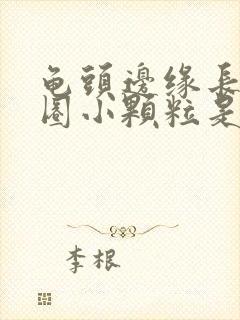 龟頭邊缘長
圈小顆粒是
李根